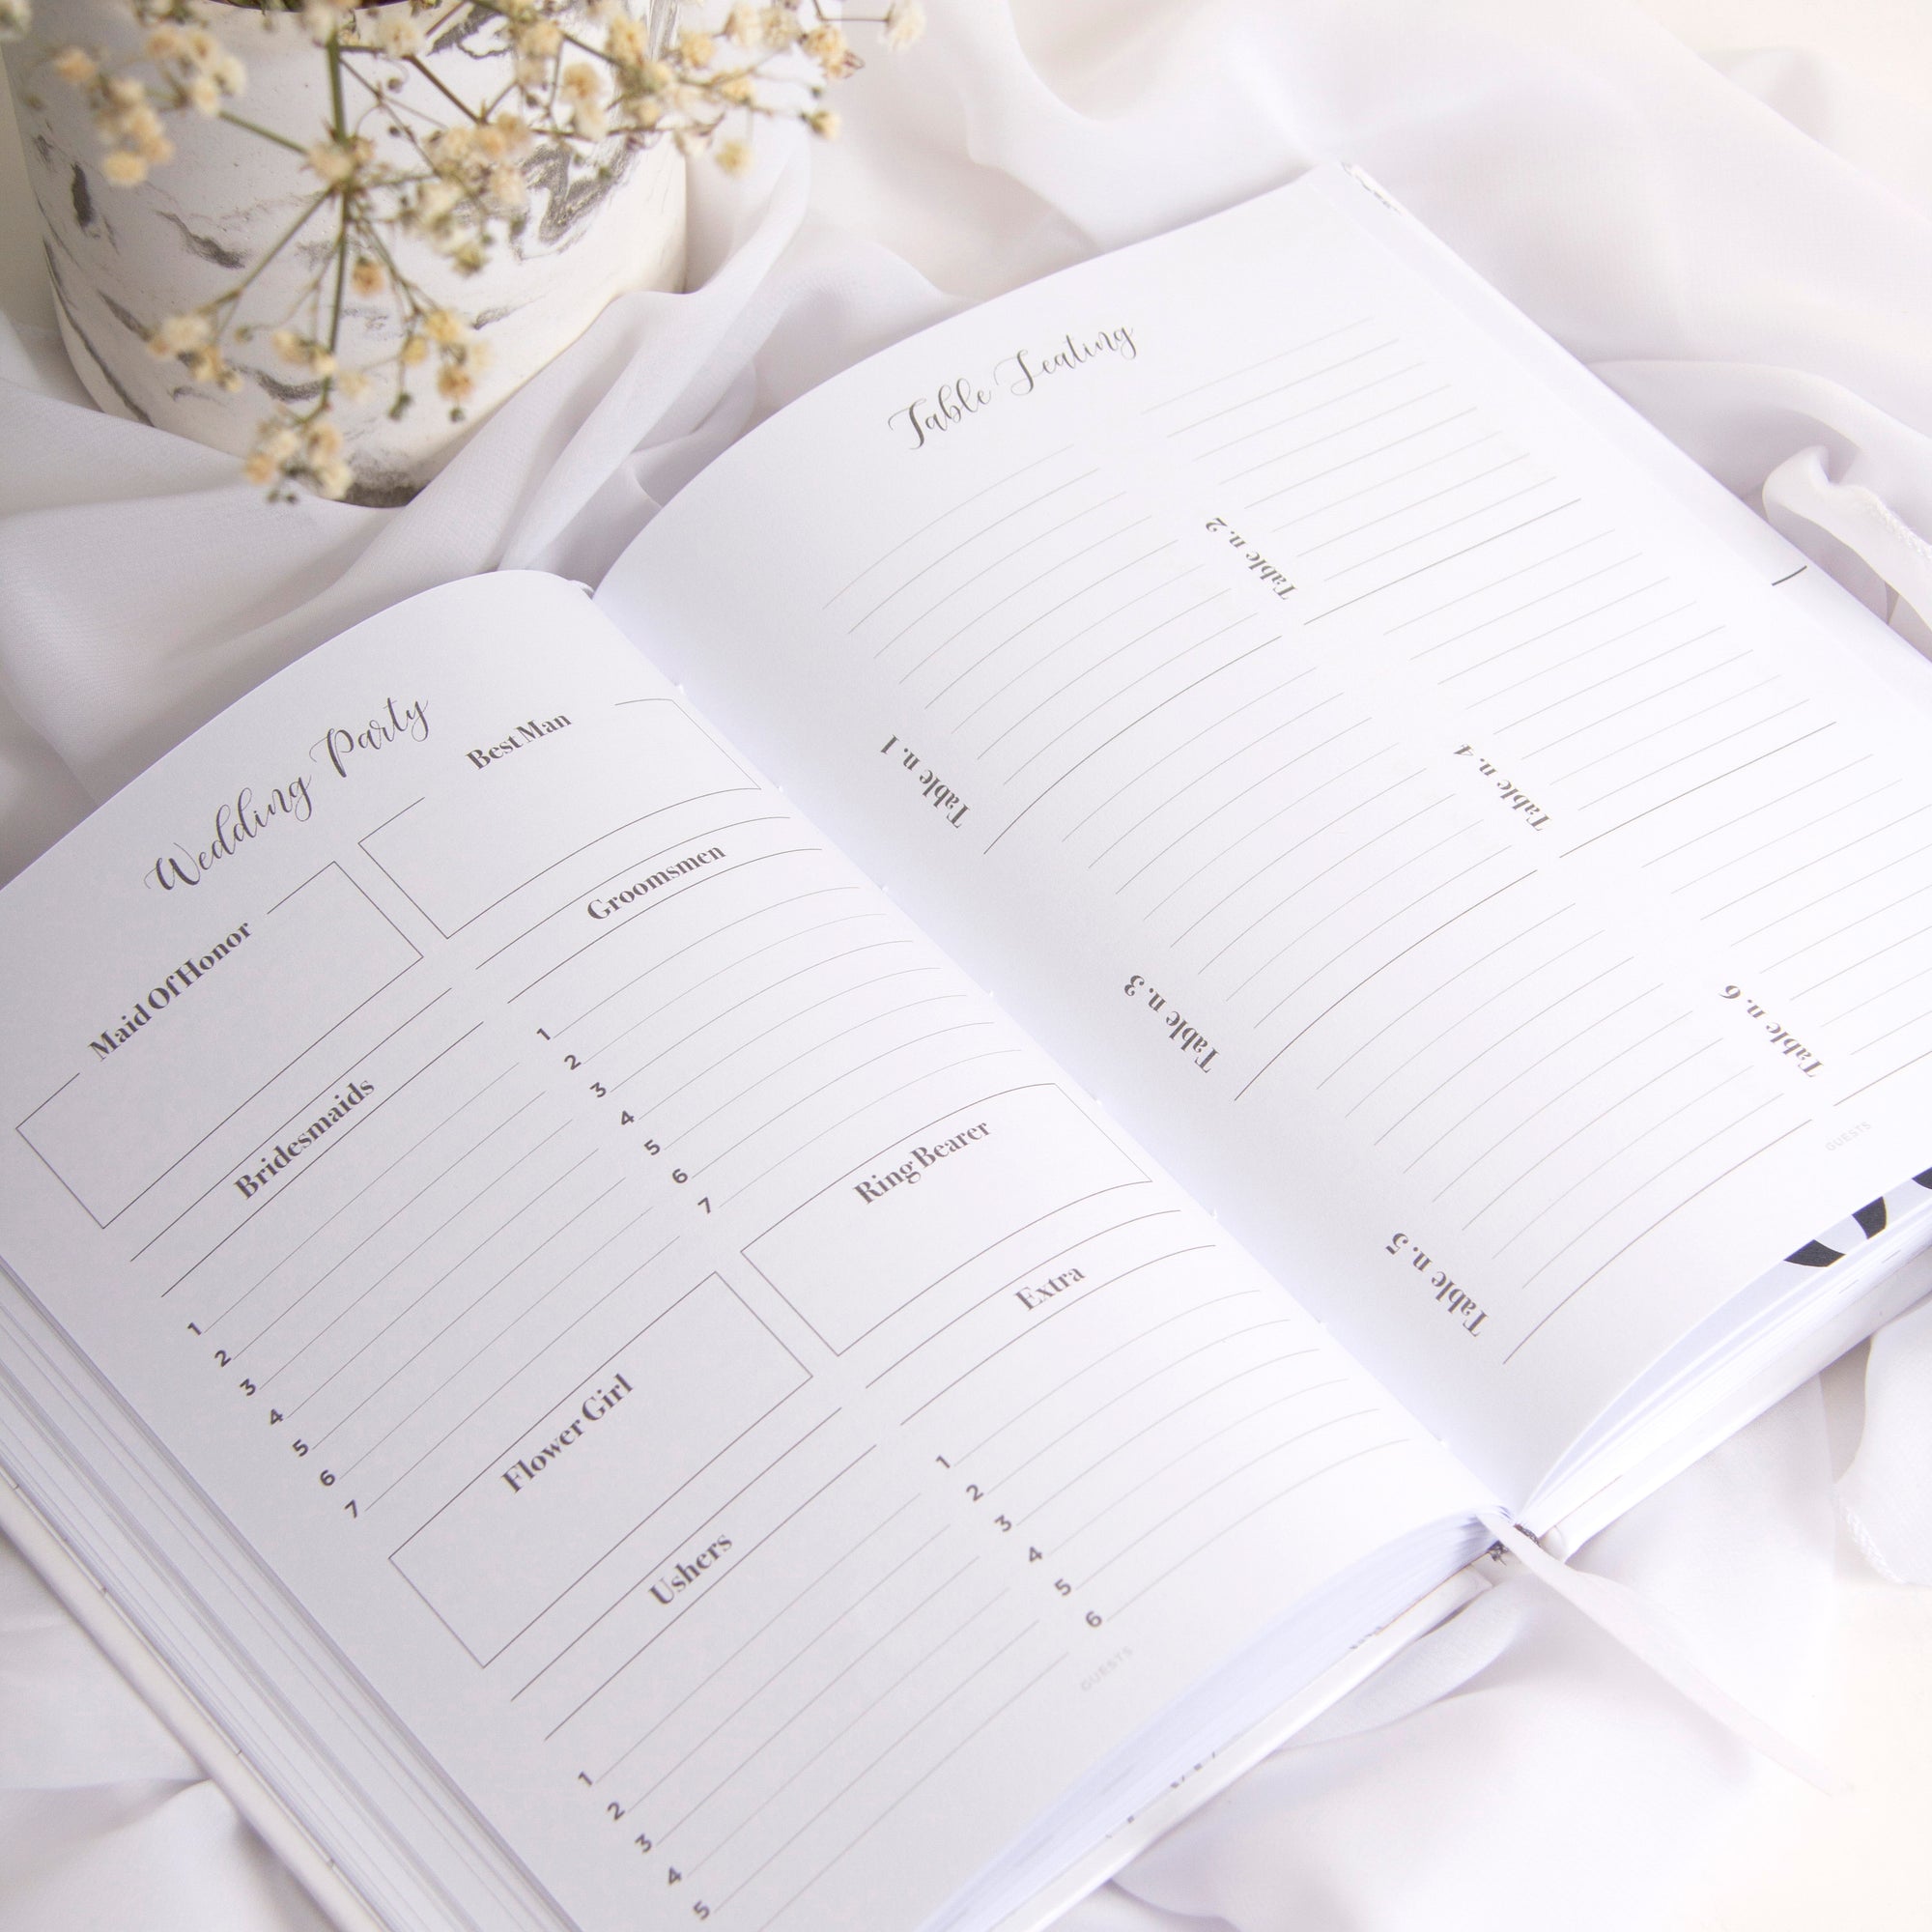 Wedding Party
Maid Of Honor
Best Man
Bridesmaids
1
2
3
4
5
6
7
Groomsmen
1
2
3
4
5
6
7
Flower Girl
Ring Bearer
Ushers
1
2
3
4
5
Extra
1
2
3
4
5
6
GUESTS
Table Seating
Table n.1
Table n.2
Table n.3
Table n.4
Table n.5
Table n.6
GUESTS